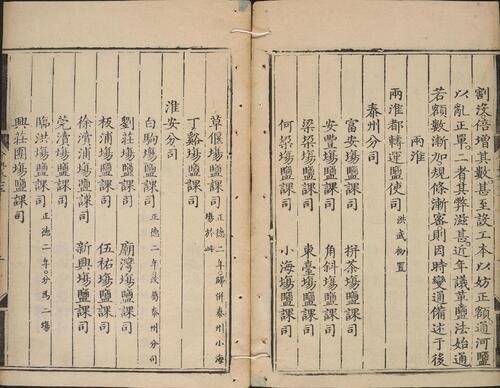 割沒倍增其數甚至設工本以妨正額通河鹽
以亂正單二者其弊滋甚近年議革鹽法始通
若額數漸加規條漸密則因時變通備述于後
兩淮
兩淮都轉運鹽使司 洪武初置
泰州分司
富安塲鹽課司 拼茶塲鹽課司
安豐塲鹽課司 角斜塲鹽課司
梁垛塲鹽課司 東臺塲鹽課司
何垛塲鹽課司 小海塲鹽課司
草偃塲鹽課司 正德二年歸併泰州小海塲於此
丁谿塲鹽課司
淮安分司
白駒塲鹽課司 正德二年改屬泰州分司
劉莊塲鹽課司 廟灣塲鹽課司
板浦塲鹽課司 伍祐塲鹽課司
徐瀆浦塲鹽課司 新興塲鹽課司
莞瀆塲鹽課司
臨洪塲鹽課司 正德二年分爲二塲
興莊團塲鹽課司